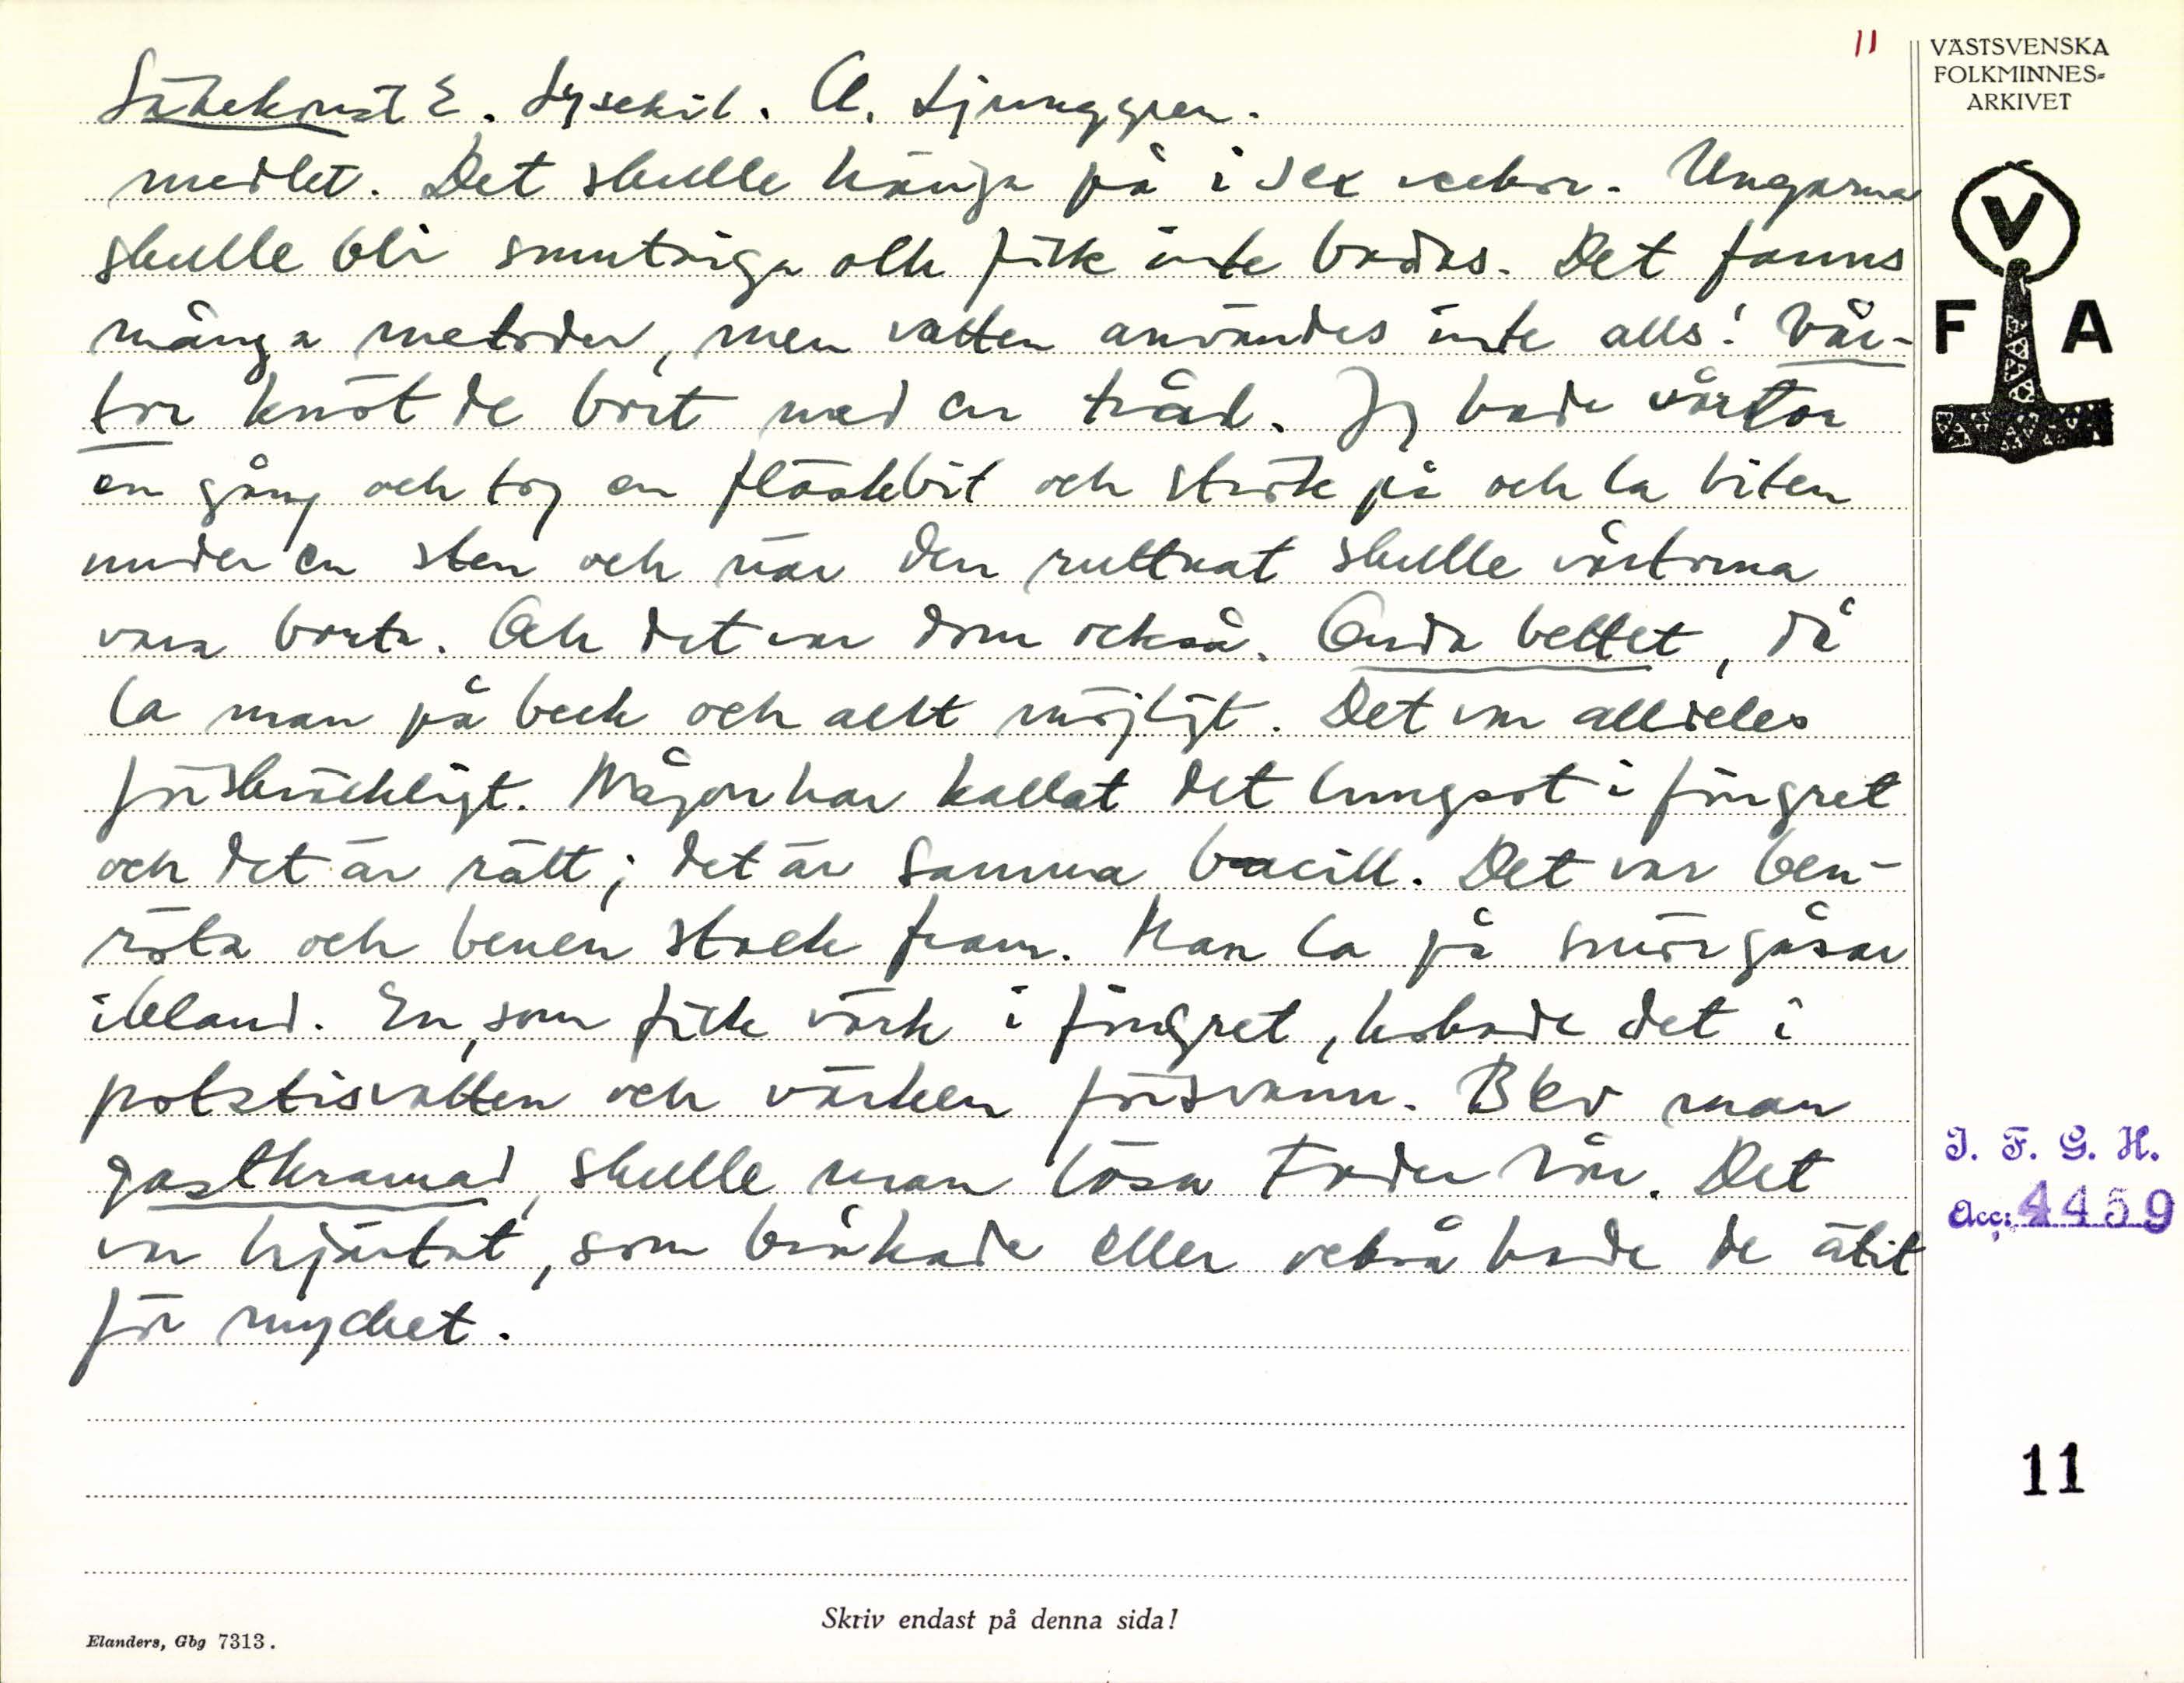 11
VÄSTSVENSKA
FOLKMINNES-
ARKIVET
Läkekonst E. Lysekil. A. Ljunggren.
medlet. Det skulle hänga på i sex veckor. Ungarna
skulle bli smutsiga och fick inte badas. Det fanns
många metoder, men vatten användes inte alls! Vår-
tor knöt de bort med en tråd. Jag hade vårtor
en gång och tog en fläskbit och strök på och la biten
under en sten och när den ruttnat skulle vårtorna
vara borta. Och det var dom också. Onda bettet, då
la man på beck och allt möjligt. Det var alldeles
förskräckligt. Någon har kallat det lungsot i fingret
och det är rätt; det är samma bacill. Det var ben-
röta och benen stack fram. Man la på smörgåsar
ibland. En, som fick värk i fingret, kokade det i
potatisvatten och värken försvann. Blev man
gastkramad, skulle man läsa Fader vår. Det
var hjärtat, som bråkade eller också hade de ätit
för mycket.
V
F A
I. F. G. H.
Acc: 4459
11
Skriv endast på denna sida!
Elanders, Gbg 7313.